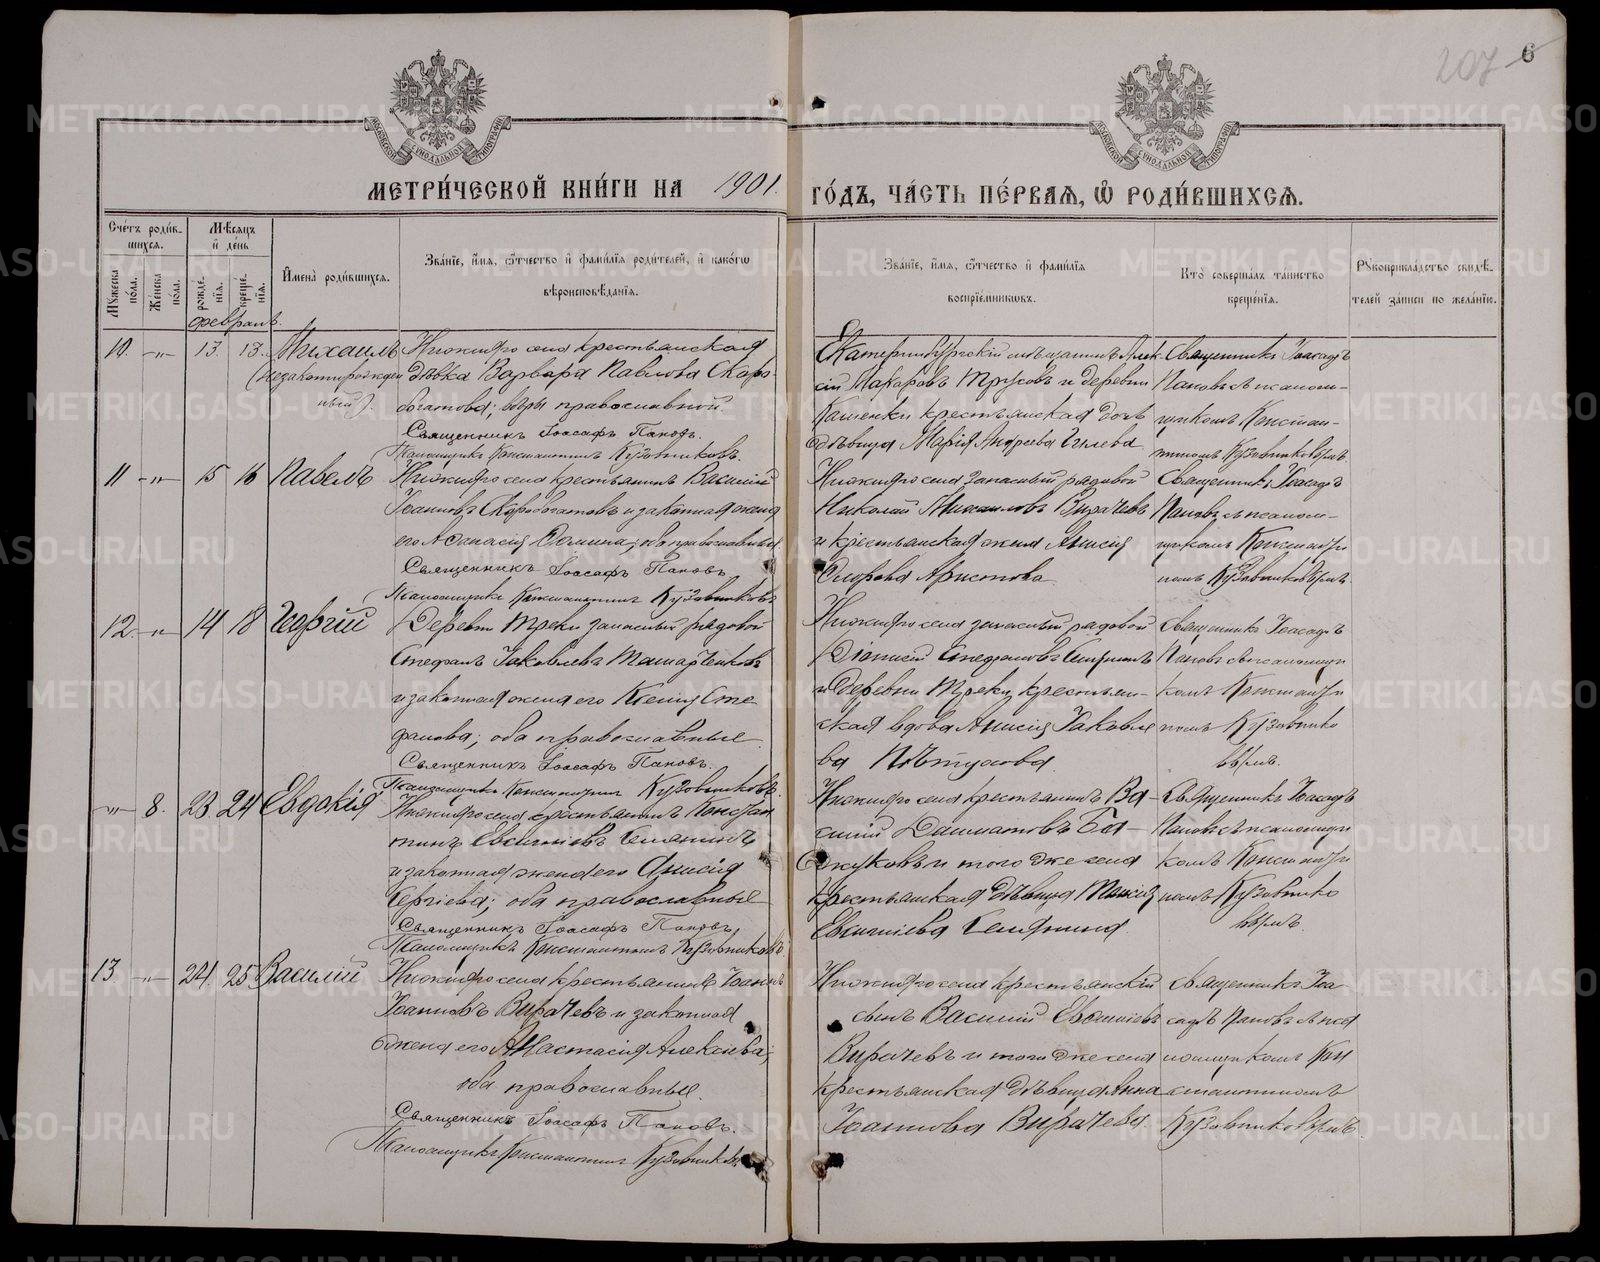 207 6
МЕТРИ́ЧЕСКОЙ КНИ́ГИ НА 1901. ГО́ДЪ, ЧА́СТЬ ПЕ́РВАЯ, Ѽ РОДИ́ВШИХСѦ.
Сче́тъ роди́в-
шихся.
Мѣ́сяцъ
и҆ де́нь
Му́жеска
по́ла.
Же́нска
по́ла.
рожде́-
нїя.
креще́-
нїя.
И҆мена̀ роди́вшихся.
Зва́нїе, и҆́мя, ѻ҆́тчество и҆ фами́лїя роди́телей, и҆ како́гѡ
вѣроисповѣ́данїя.
Зва́нїе, и҆́мя, ѻ҆́тчество и҆ фами́лїя
воспрїе́мникѡвъ.
Кто̀ соверша́лъ та́инство
креще́нїя.
Рꙋкоприкла́дство свидѣ́-
телей за́писи по жела́нїю.
февраль.
10. -"- 13. 13. Михаилъ
(незаконнорожден
ный).
села крестьянская
дѣвка Варвара Павлова Скоро-
богатова; вѣры православной.
Священникъ Іоасафъ Паповъ.
Псаломщикъ Константинъ Кузовниковъ.
Екатеринбургскій мѣщанинъ Алек
сій Макаровъ Трусовъ и деревни
крестьянская дочь
дѣвица Марія Андреева
Священникъ Іоасафъ
Паповъ съ псалом-
щикомъ Констан-
тиномъ Кузовниковымъ.
11 -"- 15 16 Павелъ
села крестьянинъ Василій
Іоанновъ Скоробогатовъ и законная жена
его Афанасія Ѳомина; оба православные
Священникъ Іоасафъ Паповъ
Псаломщикъ Константинъ Кузовниковъ
села запасный рядовой
Николай Михаиловъ Вирачевъ
и крестьянская жена Анисія
Аристова.
Священникъ Іоасафъ
Паповъ съ псалом-
щикомъ Константи
номъ Кузовниковымъ.
12. -"- 14 18 Георгій
Деревни Треки запасный рядовой
Стефанъ Іаковлевъ
и законная жена его Ксенія Сте
фанова; оба православные
Священникъ Іоасафъ Паповъ.
Псаломщикъ Константинъ Кузовниковъ.
села запасный рядовой
Діонисій Стефановъ
и деревни Треки крестьян-
ская вдова Анисія Іаковле
ва Пѣтухова.
Священникъ Іоасафъ
Паповъ съ псаломщи
комъ Константи
номъ Кузовнико
вымъ.
-"- 8. 23 24 Евдокія
села крестьянинъ Констан
тинъ Евсигніевъ
и законная жена его Анисія
Сергіева; оба православные
Священникъ Іоасафъ Паповъ,
Псаломщикъ Константинъ Кузовниковъ
села крестьянинъ Ва-
силій Далматовъ Ба-
жуковъ и того же села
крестьянская дѣвица
Евсигніева
Священникъ Іоасафъ
Паповъ съ псаломщи
комъ Константи
номъ Кузовнико
вымъ.
13 -"- 24. 25 Василій
села крестьянинъ Іоаннъ
Іоанновъ Вирачевъ и законная
жена его Анастасія Алексіева;
оба православные.
Священникъ Іоасафъ Паповъ.
Псаломщикъ Константинъ Кузовниковъ.
села крестьянскій
сынъ Василій Евфиміевъ
Вирачевъ и того же села
крестьянская дѣвица Анна
Іоаннова Вирачева
Священникъ Іоа
сафъ Паповъ съ пса
ломщикомъ Кон
стантиномъ
Кузовниковымъ.
METRIKI.GASO-URAL.RU